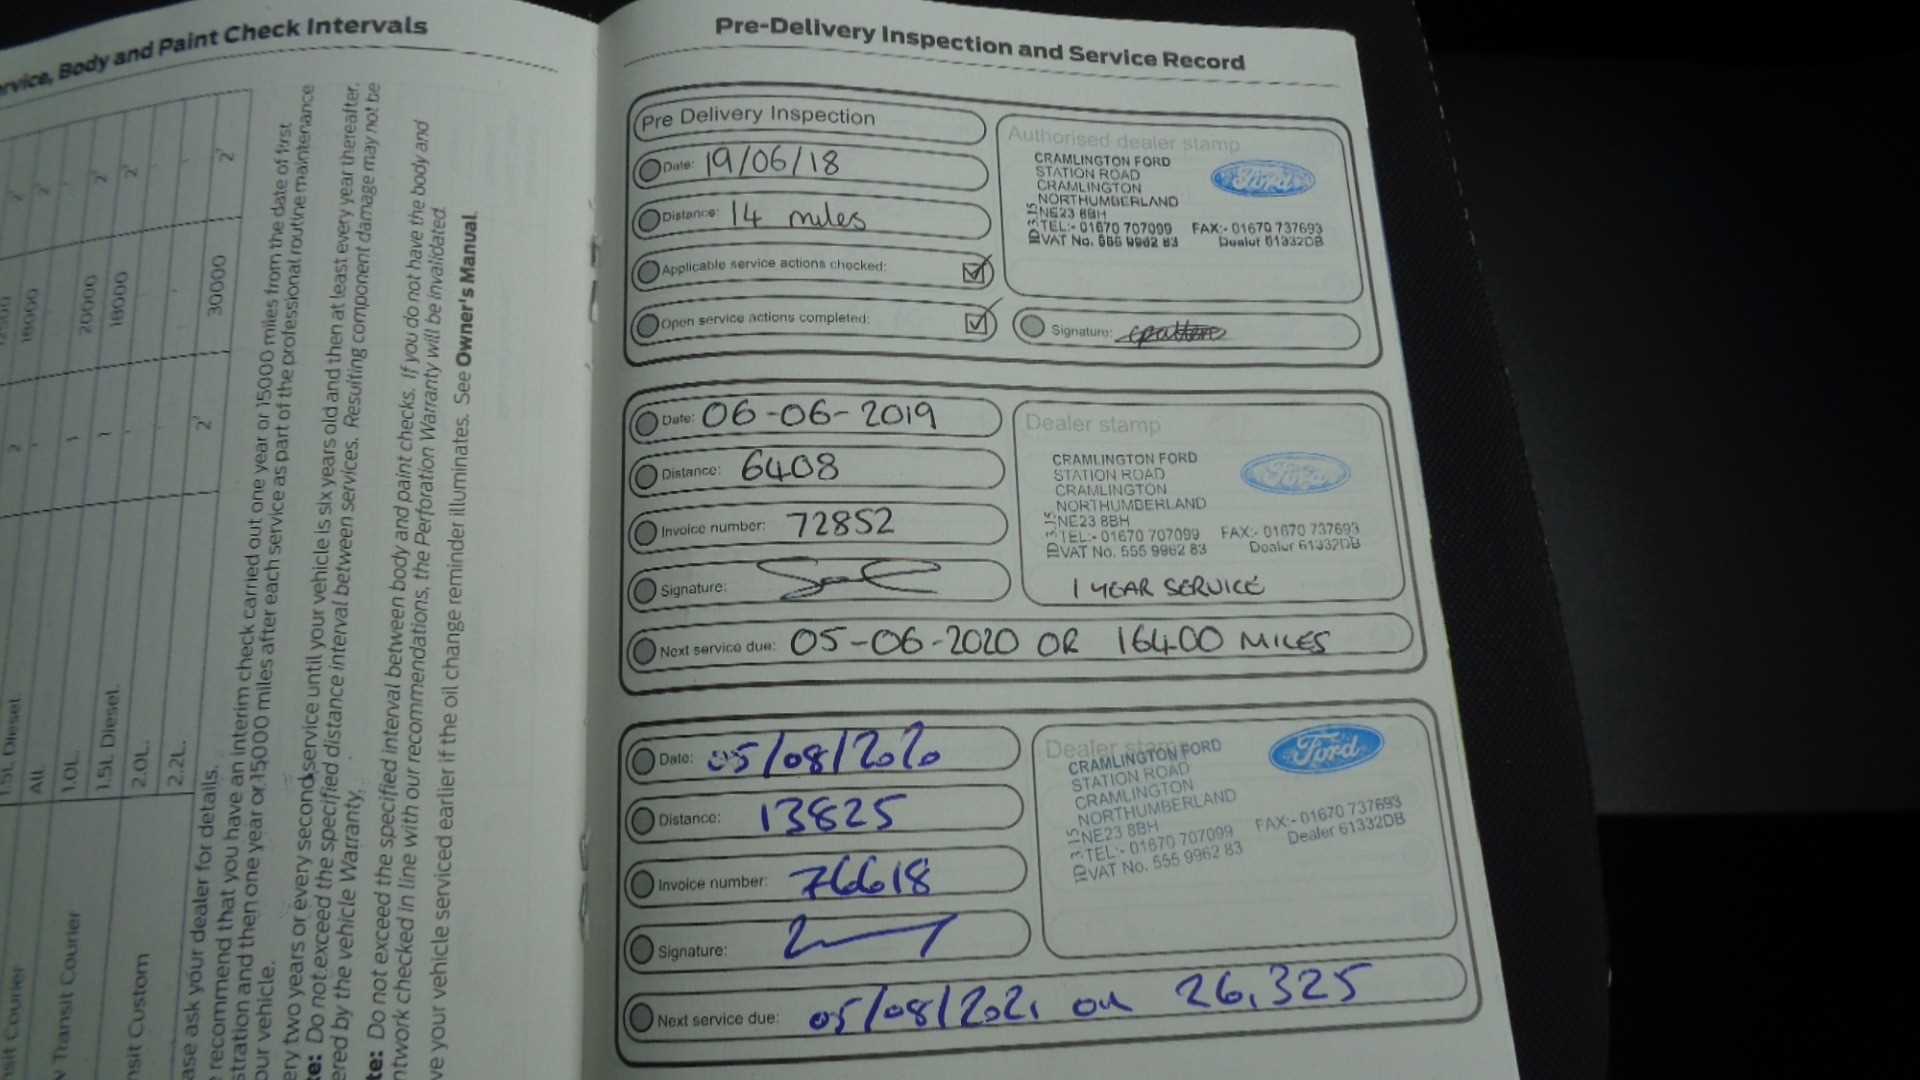 Service, Body and Paint Check Intervals
18000
20000
18000
30000
1.5L Diesel
All
1.0L
1.5L Diesel
2.0L
2.2L
Transit Courier
ase ask your dealer for details.
recommend that you have an interim check carried out one year or 15000 miles from the date of first
stration and then one year or 15000 miles after each service as part of the professional routine maintenance
our vehicle.
ery two years or every second service until your vehicle is six years old and then at least every year thereafter.
te: Do not exceed the specified distance interval between services. Resulting component damage may not be
ered by the vehicle Warranty.
te: Do not exceed the specified interval between body and paint checks. If you do not have the body and
ntwork checked in line with our recommendations, the Perforation Warranty will be invalidated.
ve your vehicle serviced earlier if the oil change reminder illuminates. See Owner's Manual.
Pre-Delivery Inspection and Service Record
Pre Delivery Inspection
Date: 19/06/18
Distance: 14 miles
Applicable service actions checked:
Open service actions completed:
Authorised dealer stamp
CRAMLINGTON FORD
STATION ROAD
CRAMLINGTON
NORTHUMBERLAND
NE23 8BH
TEL:- 01670 707099 FAX:- 01670 737693
VAT No. 555 9962 83 Dealer 61332DB
Ford
Signature:
Date: 06-06-2019
Distance: 6408
Invoice number: 72852
Signature:
Dealer stamp
CRAMLINGTON FORD
STATION ROAD
CRAMLINGTON
NORTHUMBERLAND
NE23 8BH
TEL:- 01670 707099 FAX:- 01670 737693
VAT No. 555 9962 83 Dealer 61332DB
Ford
1 YEAR SERVICE
Next service due: 05-06-2020 OR 16400 MILES
Date: 05/08/2020
Distance: 13825
Invoice number: 76618
Signature:
Dealer stamp
CRAMLINGTON FORD
STATION ROAD
CRAMLINGTON
NORTHUMBERLAND
NE23 8BH
TEL:- 01670 707099 FAX:- 01670 737693
VAT No. 555 9962 83 Dealer 61332DB
Ford
Next service due: 05/08/2021 OR 26,325